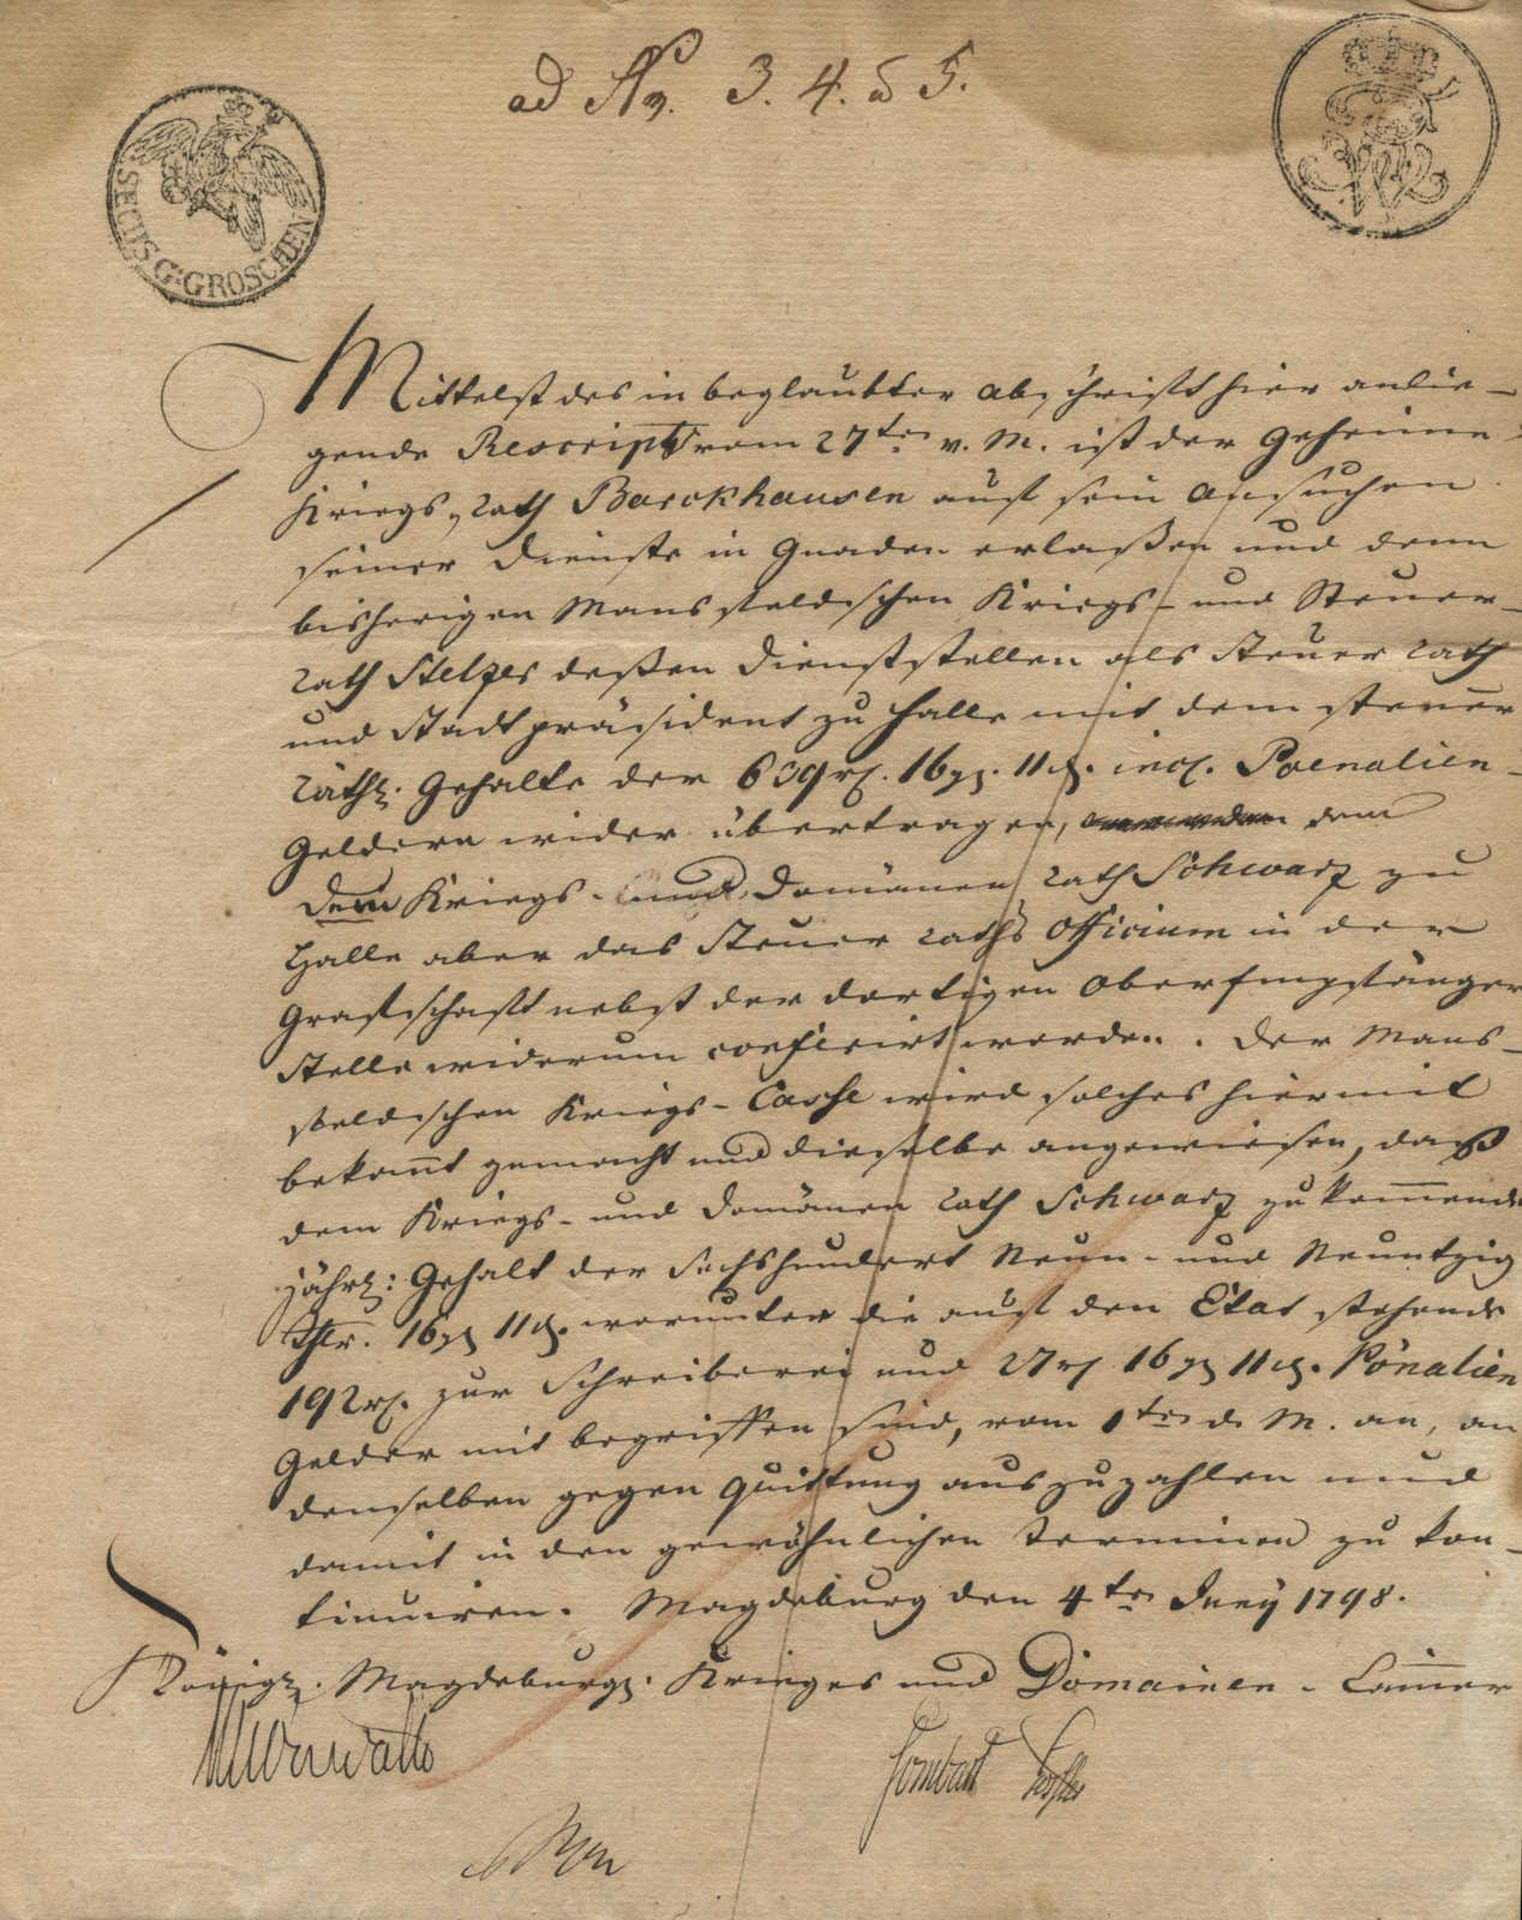 ad No. 3. 4. & 5.
SECHS G: GROSCHEN
Mittelst des in beglaubter Abschrift hier anlie-
gende Rescripts vom 27ten v. M. ist der Geheime
Kriegs Rath Barckhausen auf sein Ansuchen
seiner Dienste in Gnaden erlaßen und dem
bisherigen Mansfeldischen Kriegs- und Steuer-
Rath Stelzer deßen Dienststellen als Steuer Rath
und Stadtpräsident zu Halle mit dem Steuer
Räthl. Gehalte der 16 gr. 11 d. incl. Poenalien-
Geldern wider übertragen, dem
dem Kriegs- und Domänen Rath Schwarz zu
Halle aber das Steuer Raths Officium in der
Grafschaft nebst der dortigen Oberempfänger
Stelle widerum conferirt worden. Der Mans-
feldischen Kriegs-Casse wird solches hiermit
bekannt gemacht und dieselbe angewiesen, das
dem Kriegs- und Domänen Rath Schwarz zukommende
jährl: Gehalt der Sechshundert Neun- und Neuntzig
Thlr. 16 gr 11 d. worunter die auf den Etat stehende
192 rt. zur Schreiberei und 27 rt 16 gr 11 d. Pönalien
Gelder mit begriffen sind, vom 1ten d. M. an, an
denselben gegen Quittung auszuzahlen und
damit in den gewöhnlichen Terminen zu kon-
tinuiren. Magdeburg den 4ten Juny 1798.
Königl. Magdeburg. Krieges und Domainen-Cammer
Sombart